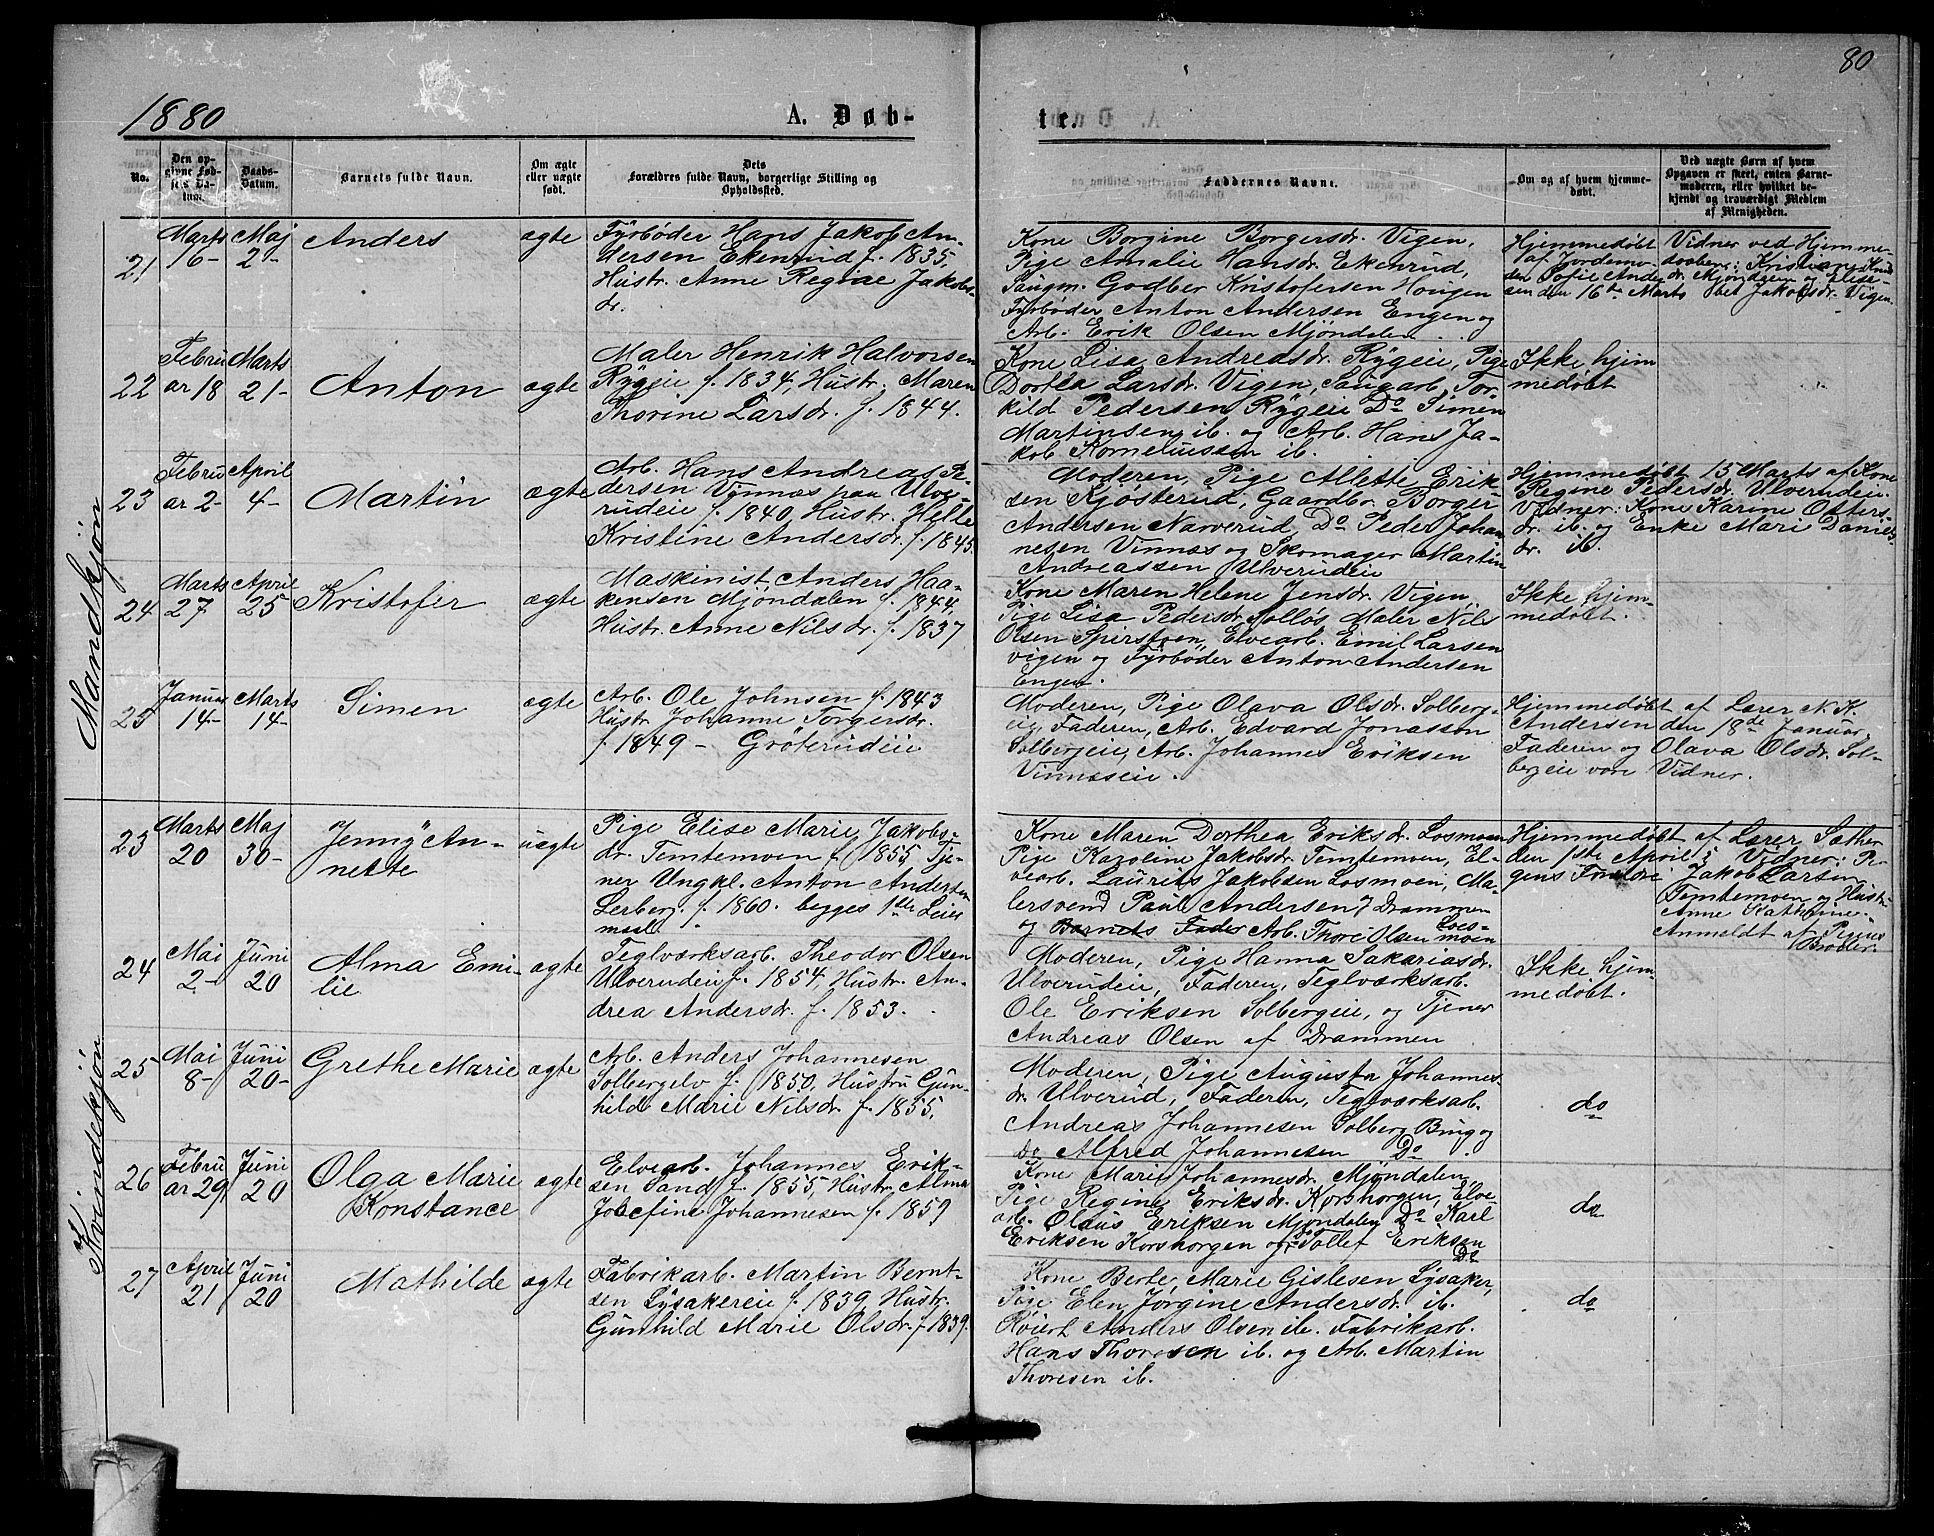 80
1880
A. Døb-
te.
No.
Den op-
givne Fød-
sels Da-
tum.
Daabs-
Datum.
Barnets fulde Navn.
Om ægte
eller uægte
født.
Dets
Forældres fulde Navn, borgerlige Stilling og
Opholdssted.
Faddernes Navne.
Om og af hvem hjemme-
døbt.
Ved uægte Børn af hvem
Opgaven er skeet, enten Barne-
moderen, eller hvilket be-
kjendt og troværdigt Medlem
af Menigheden.
Mandkjøn
21
Marts
16-
Maj
2-
Anders
ægte
Fyrbøder Hans Jakob An-
dersen Ekenrud f. 1835
Hustr. Anne Regine Jakobs-
dr.
Kone Borgine Borgersdr. Vigen,
Pige Amalie Hansdr. Ekenrud,
Saugm. Godber Kristofersen Hougen
Fyrbøder Anton Andersen Engen og
Arb. Erik Olsen Mjøndalen
Hjemmedøbt
af Jordemo-
den Sofie Ander
sen den 16de Marts
Vidner ved Hjemme-
daaben: Kristiane Knud
dr. Mjøndalen og Elise-
bet Jakobsdr. Vigen
22
Febru
ar 18
Marts
21-
Anton
ægte
Maler Henrik Halvorsen
Rygeie f. 1834, Hustr. Maren
Thorine Larsdr. f. 1844.
Kone Lisa Andreasdr. Rygeie, Pige
Dorthea Larsdr. Vigen, Saugarb. Tor-
kild Pedersen Rygeie Do Simen
Martinsen ib. og Arb. Hans Ja-
kob Korneliussen ib.
Ikke hjem
medøbt
23
Febru
ar 2-
April
4-
Martin
ægte
Arb. Hans Andreas Pe-
dersen Vinnæs paa Ulve-
rudeie f. 1840, Hustr. Helle
Kristine Andersdr. f. 1845.
Moderen, Pige Allette Erik-
sen Kjøsterud, Gaardbr. Borger
Andersen Narverud, Do Peder Johan
nesen Vinnæs og Skomager Martin
Andreassen Ulverudeie
Hjemmedøbt 15 Marts af Kone
Regine Pedersdr. Ulverudeie.
Vidner: Kone Karine Otters-
dr. ib. og Enke Mari Daniels
dr. ib.
24
Marts
27
April
25
Kristofer
ægte
Maskinist Anders Haa-
kensen Mjøndalen f. 1844,
Hustr. Anne Nilsdr. f. 1837
Kone Maren Helene Jensdr. Vigen
Pige Lisa Pedersdr. Solløs, Maler Nils
Olsen Spirstøen, Elvearb. Emil Larsen
vigen og Fyrbøder Anton Andersen
Engen.
Ikke hjem-
medøbt.
25
Januar
14-
Marts
14-
Simen
ægte
Arb. Ole Johnsen f. 1843
Hustr. Johanne Torgersdr.
f. 1849 - Grøterudeie
Moderen, Pige Olava Olsdr. Solberg-
eie, Faderen, Arb. Edvard Jonassen
Solbergeie, Arb. Johannes Eriksen
Vinnæseie.
Hjemmedøbt af Lærer N. K.
Andersen den 18de Januar,
Faderen og Olava Olsdr. Sol-
bergeie vare Vidner.
Kvindekjøn
23
Marts
20
Maj
30-
Jenny An-
nette
uægte
Pige Elise Marie Jakobs-
dr. Temtemoen f. 1855, Tje-
ner Ungkl. Anton Andersen
Lerberg. f. 1860. begges 1ste Leier
maal.
Kone Maren Dorthea Eriksdr. Losmoen
Pige Karoline Jakobsdr. Temtemoen, El-
vearb. Laurits Jakobsen Losmoen, Ma-
lersvend Paul Andersen Drammen
og Barnets Fader Arb. Thore Olsen Los-
moen
Hjemmedøbt af Lærer Sæther
den 1ste April; Vidner: Pi-
gens Forældre Jakob Larsen
Temtemoen og Hustr.
Anne Kathrine.
Anmeldt af Pigens
Broder.
24
Mai
2-
Juni
20
Alma Emi-
lie
ægte
Teglværksarb. Theodor Olsen
Ulverudeie f. 1854, Hustr. An-
drea Andersdr. f. 1853.
Moderen, Pige Hanna Sakariasdr.
Ulverudeie, Faderen, Teglværksarb.
Ole Eriksen Solbergeie, og Tjener
Andreas Olsen af Drammen
Ikke hjem-
medøbt.
25
Mai
8-
Juni
20-
Grethe Marie
ægte
Arb. Anders Johannesen
Solbergelv f. 1850, Hustru Gun-
hild Marie Nilsdr. f. 1855.
Moderen, Pige Augusta Johannes-
dr. Ulverud, Faderen, Teglværksarb.
Andreas Johannesen Solberg Brug og
Do Alfred Johannesen Do
do
26
Febru
ar 29
Juni
20
Olga Marie
Konstance
ægte
Elvearb. Johannes Erik-
sen Sand f. 1855, Hustr. Alma
Josefine Johannesen f. 1859
Kone Marie Johannesdr. Mjøndalen
Pige Regine Eriksdr. Korshorgen, Elve-
arb. Olaus Eriksen Mjøndalen Do Karl
Eriksen Korshorgen og Do Tollef Eriksen
Do
do
27
April
21
Juni
20
Mathilde
ægte
Fabrikarb. Martin Bernt-
sen Lysakereie f. 1839 Hustr.
Gunhild Marie Olsdr. f. 1839.
Kone Berte Marie Gislesen Lysaker,
Pige Elen Jørgine Andersdr. ib.
Anders Olsen ib. Fabrikarb.
Hans Thoresen ib. og Arb. Martin
Thoresen ib.
do